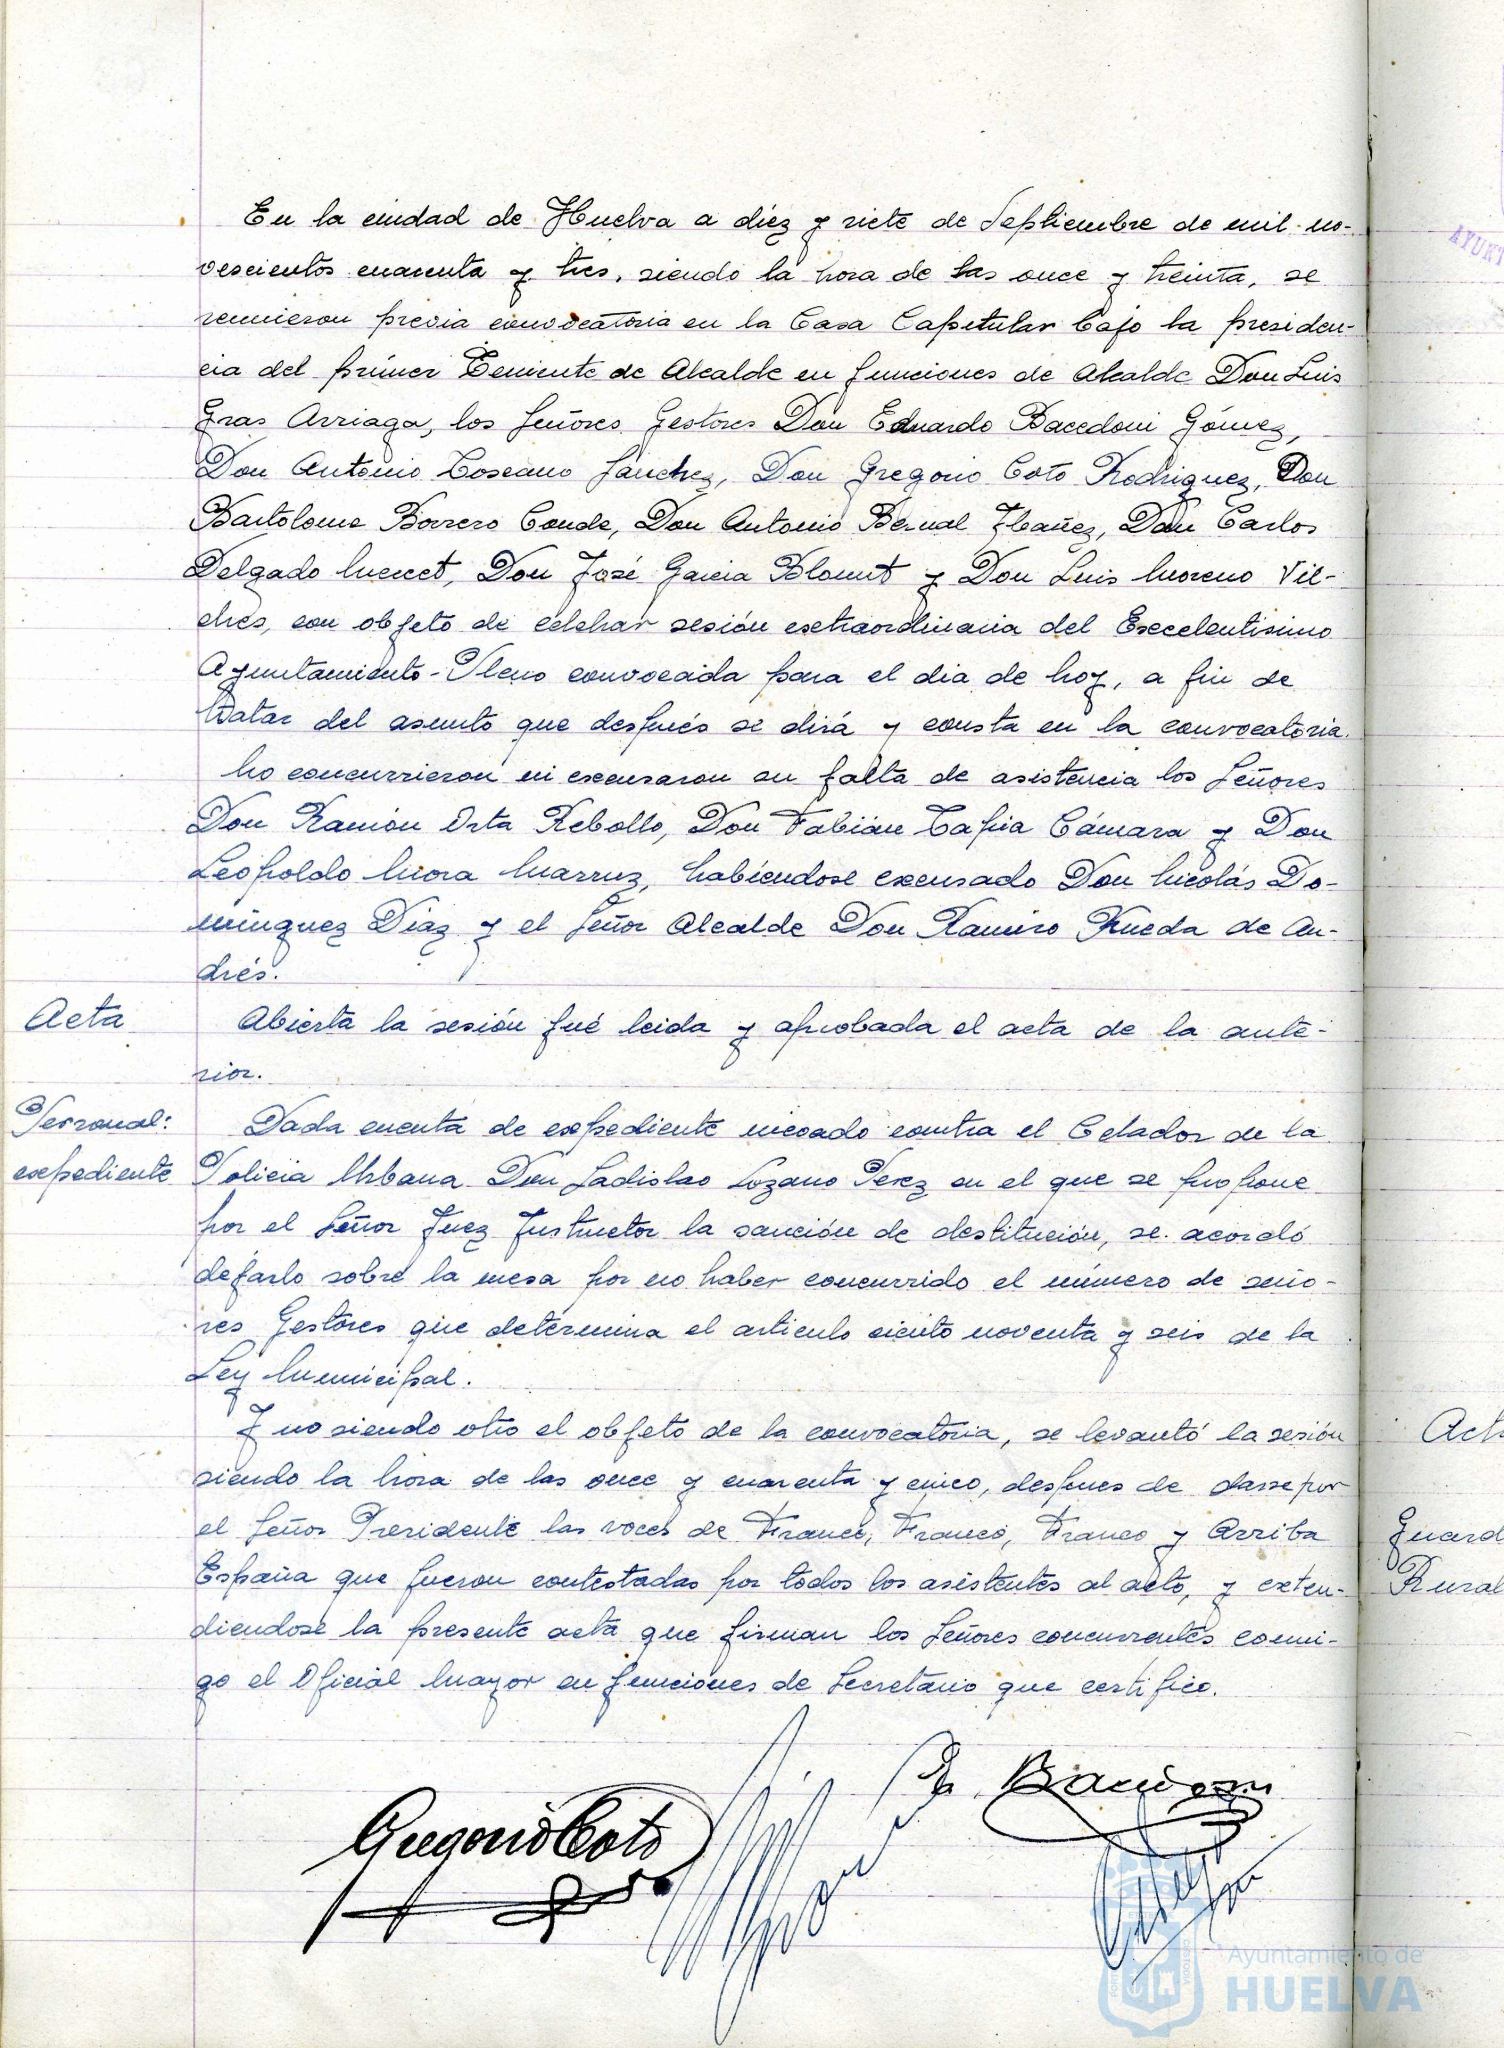 En la ciudad de Huelva a diez y siete de Septiembre de mil no-
vescientos cuarenta y tres, siendo la hora de las once y treinta, se
reunieron previa convocatoria en la Casa Capitular bajo la presiden-
cia del primer Teniente de Alcalde en funciones de Alcalde Don Luis
Gras Arriaga, los Señores Gestores Don Eduardo Bacedoni Gómez,
Don Antonio Toscano Sanchez, Don Gregorio Coto Rodriguez, Don
Bartolome Borrero Conde, Don Antonio Bernal Ibañez, Don Carlos
Delgado Mercet, Don José Garcia Blount y Don Luis Moreno Vil-
ches, con objeto de celebrar sesión extraordinaria del Excelentisimo
Ayuntamiento-Pleno convocada para el dia de hoy, a fin de
tratar del asunto que después se dirá y consta en la convocatoria.
No concurrieron ni excusaron su falta de asistencia los Señores
Don Ramón Orta Rebollo, Don Fabián Tapia Cámara y Don
Leopoldo Mora Marruz, habiéndose excusado Don Nicolás Do-
minguez Diaz y el Señor Alcalde Don Ramiro Rueda de An-
drés.
Acta
Abierta la sesión fué leida y aprobada el acta de la ante-
rior.
Personal:
expediente
Dada cuenta de expediente incoado contra el Celador de la
Policia Urbana Don Ladislao Lozano Perez en el que se propone
por el Señor Juez Instructor la sanción de destitución, se acordó
dejarlo sobre la mesa por no haber concurrido el número de seño-
res Gestores que determina el articulo ciento noventa y seis de la
Ley Municipal.
Y no siendo otro el objeto de la convocatoria, se levantó la sesión
siendo la hora de las once y cuarenta y cinco, despues de darse por
el Señor Presidente las voces de Franco, Franco, Franco y Arriba
España que fueron contestadas por todos los asistentes al acto, y exten-
diendose la presente acta que firman los Señores concurrentes conmi-
go el Oficial Mayor en funciones de Secretario que certifico.
Gregorio Coto
AYUNT
Act
Guard
Rural
Ayuntamiento de
HUELVA